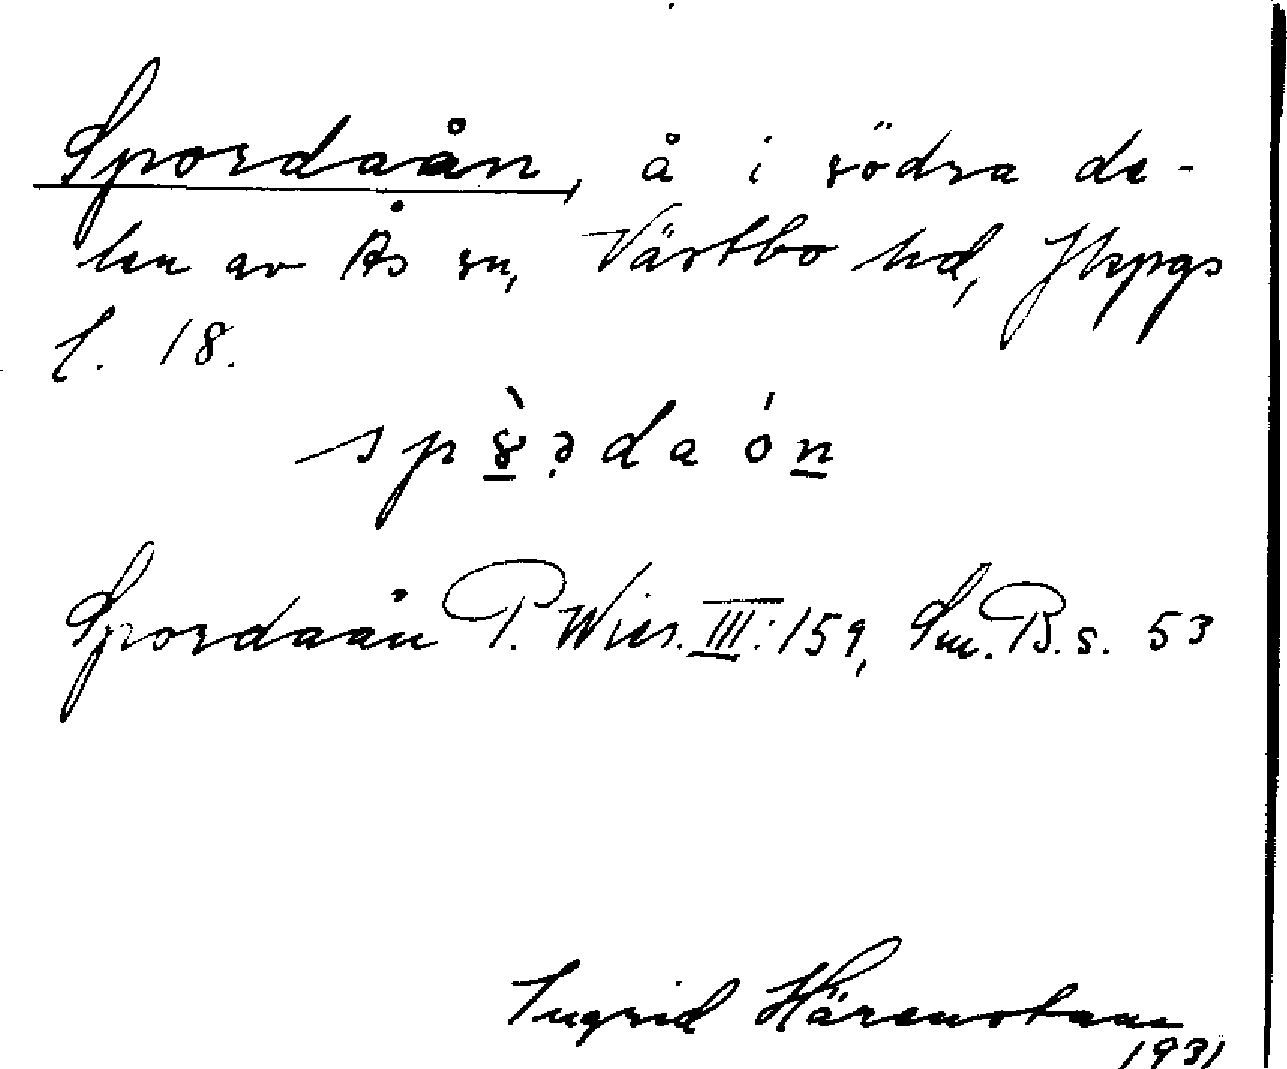 Spordaån, å i södra de-
len av Ås sn, Västbo hd, Jkpgs
l. 18.
Spordaån P. Wies. III:159, Sm. B. s. 53
Ingrid Härenstam
1931